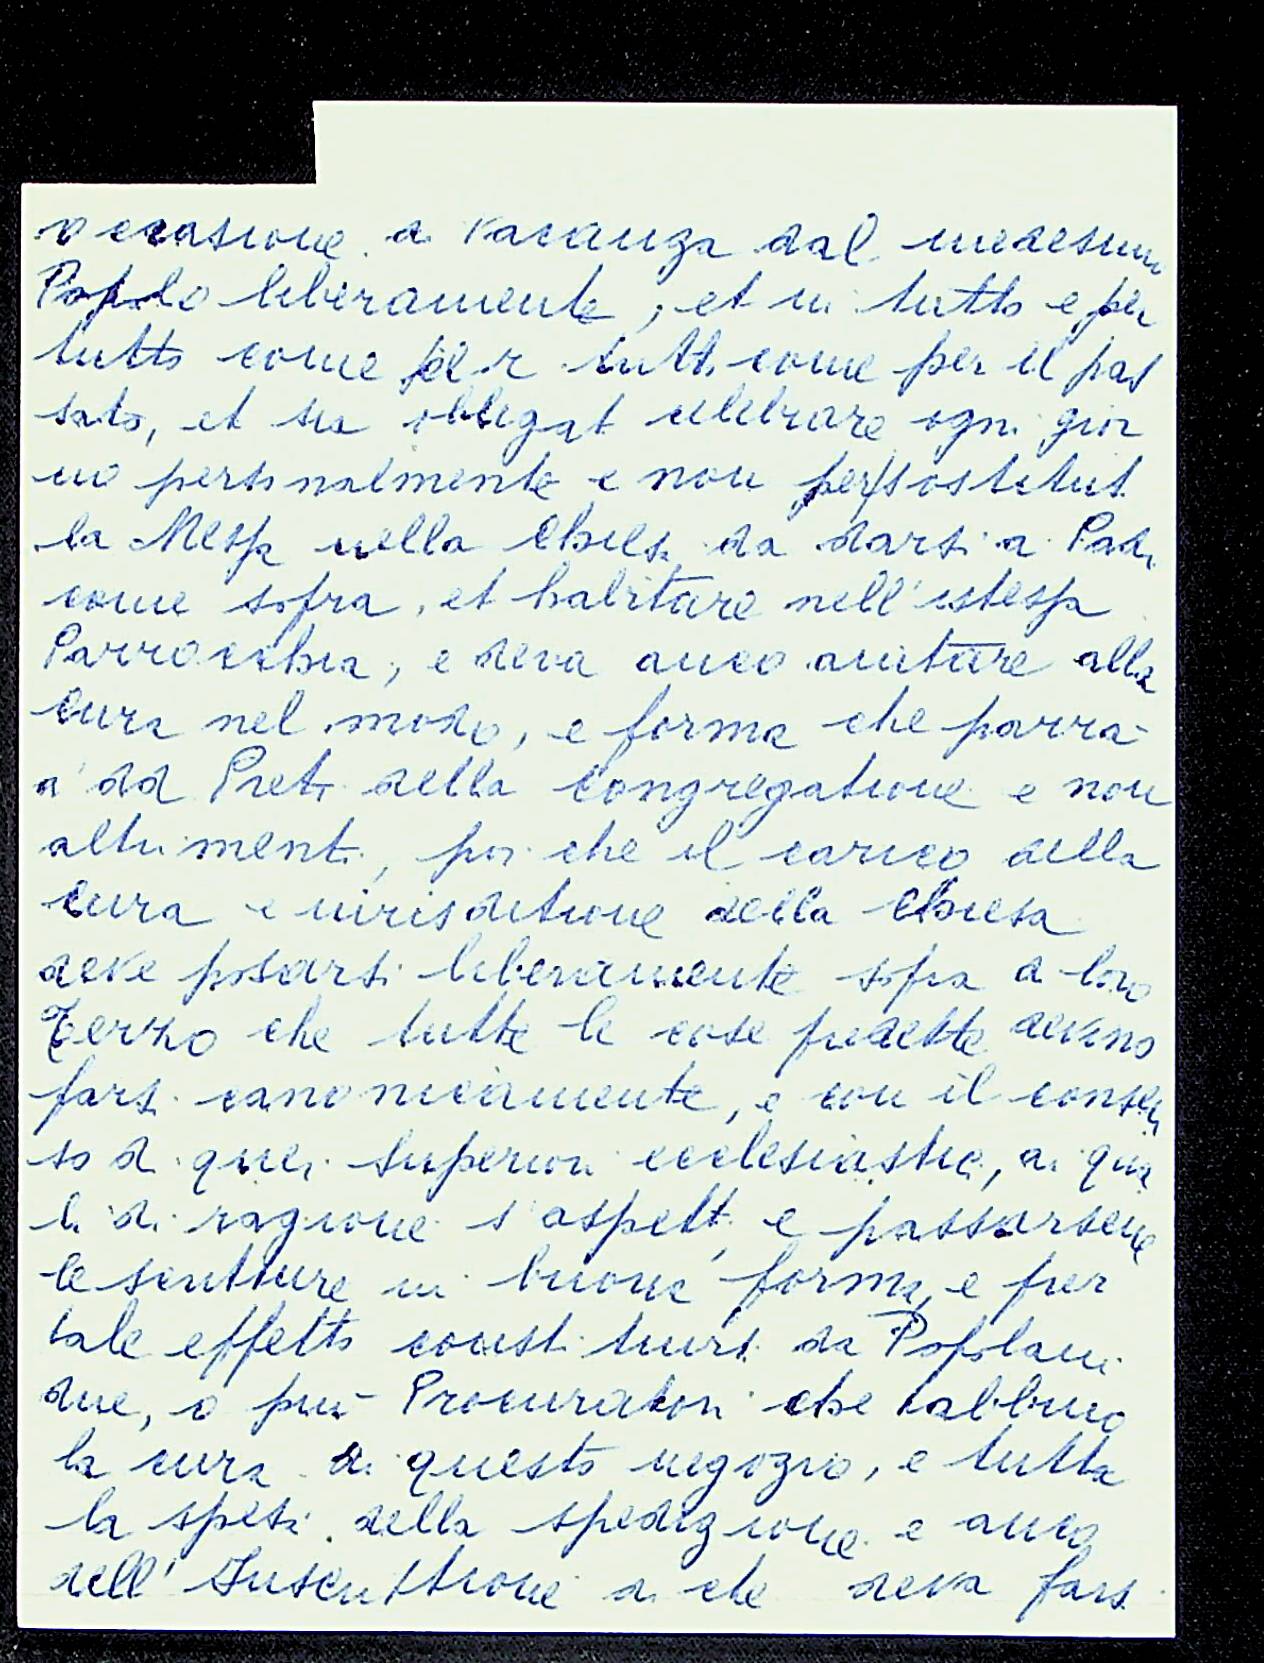 occasione di vacanza dal medesimo
Popolo liberamente, et in tutto e per
tutto come per tutti come per il pas
sato, et sia obbligat celebrare ogni gior
no personalmente e non per sostituti
la Messa nella Chiesa da darsi a Padri
come sopra, et habitare nell'istessa
Parrocchia, e deva anco aiutare alla
Cura nel modo, e forma che parrà
a' dd Preti della Congregatione e non
altrimenti, poi che il carico della
Cura e iurisditione della Chiesa
deve posarsi liberamente sopra di loro
Terzo che tutte le cose predette devino
farsi canonicamente, e con il consen
so di quei Superiori ecclesiastici, ai qua
li di ragione s'aspetti, e passarsene
le scritture in buona forma, e per
tale effetto constituirsi da Popolani
due, o più Procuratori che habbino
la cura di questo negozio, e tutta
la spesa della spedizione e anco
dell'Inscrittione di che deva farsi